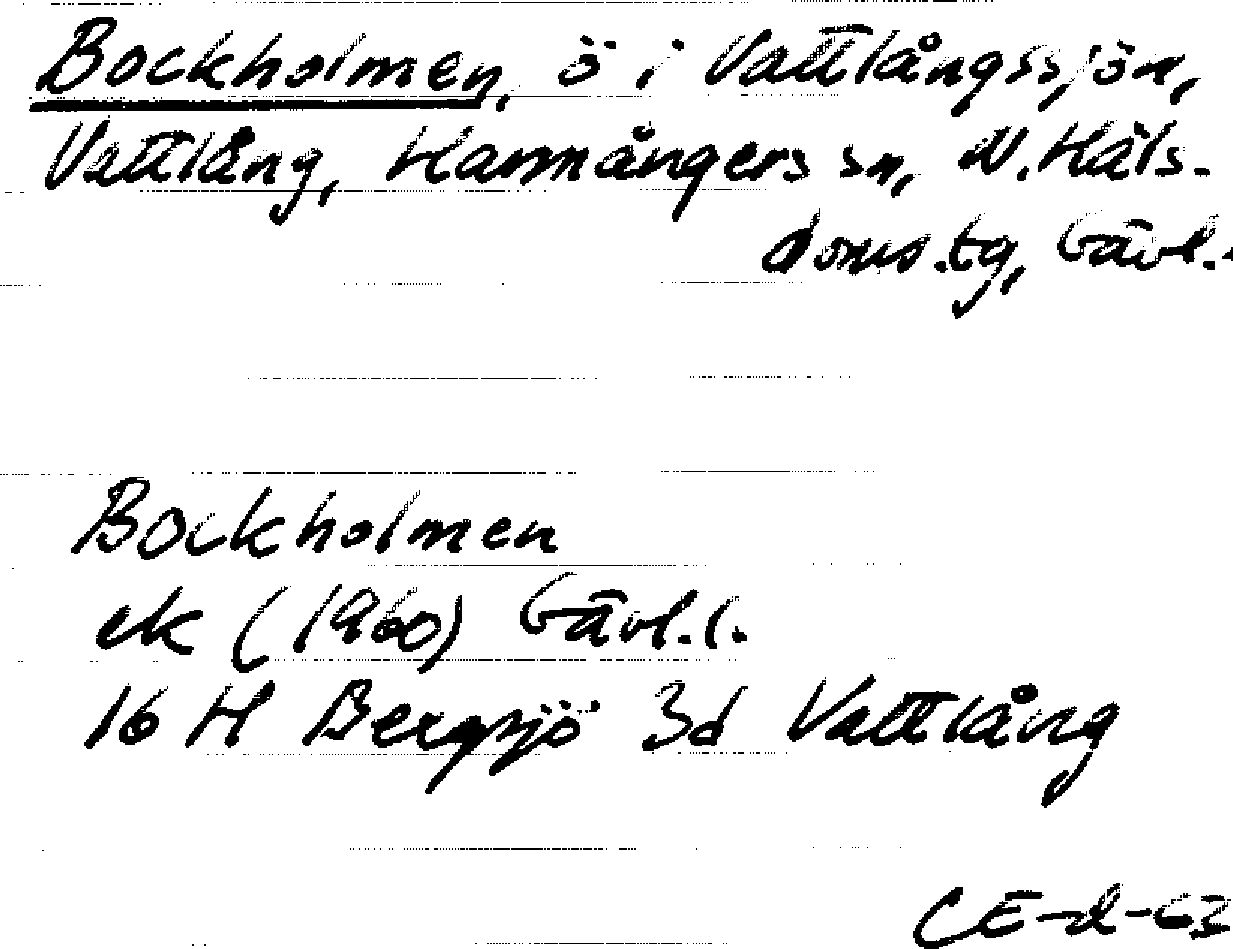 Bockholmen, ö i Vattlångssjön,
Vattlång, Harmångers sn, N. Häls-
doms.tg, Gävl.
Bockholmen
ek (1960) Gävl.l.
16 H Bergsjö 3d Vattlång
CE-d-63